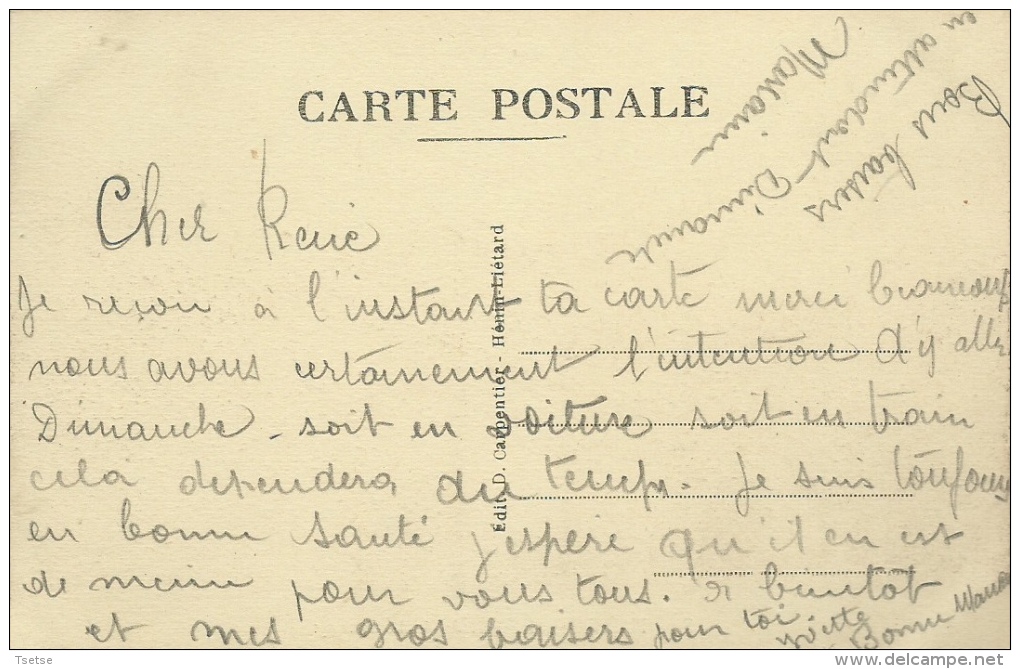 CARTE POSTALE
Cher René
Je reçoi à l'instant ta carte merci beaucoup
nous avons certainement l'intention d'y aller
Dimanche - soit en voiture soit en train
cela dependera du temps. Je suis toujours
en bonne santé j'espère qu'il en est
de meme pour vous tous. a bientôt
et mes gros baisers pour toi.
Bonne Maman
en attendant Dimanche
Bons baisers
Édit. D. Carpentier - Hénin-Liétard
Tsetse
delcampe.net